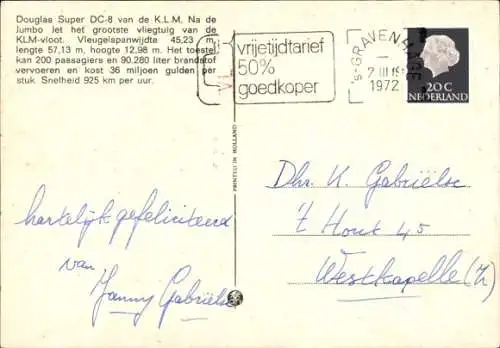 Douglas Super DC-8 van de K.L.M. Na de
Jumbo let het grootste vliegtuig van de
KLM-vloot. Vleugelspanwijdte 45,23 m,
lengte 57,13 m, hoogte 12,98 m. Het toestel
kan 200 paasagiers en 90.280 liter brandstof
vervoeren en kost 36 miljoen gulden per
stuk. Snelheid 925 km per uur.
vrijetijdtarief
50%
goedkoper
's-GRAVENHAGE
2 III
1972
20 C
NEDERLAND
PRINTED IN HOLLAND
hartelijk gefeliciteerd
van
Janny Gabriëlse
Dhr. K. Gabriëlse
't Hout 45
Westkapelle (Z)